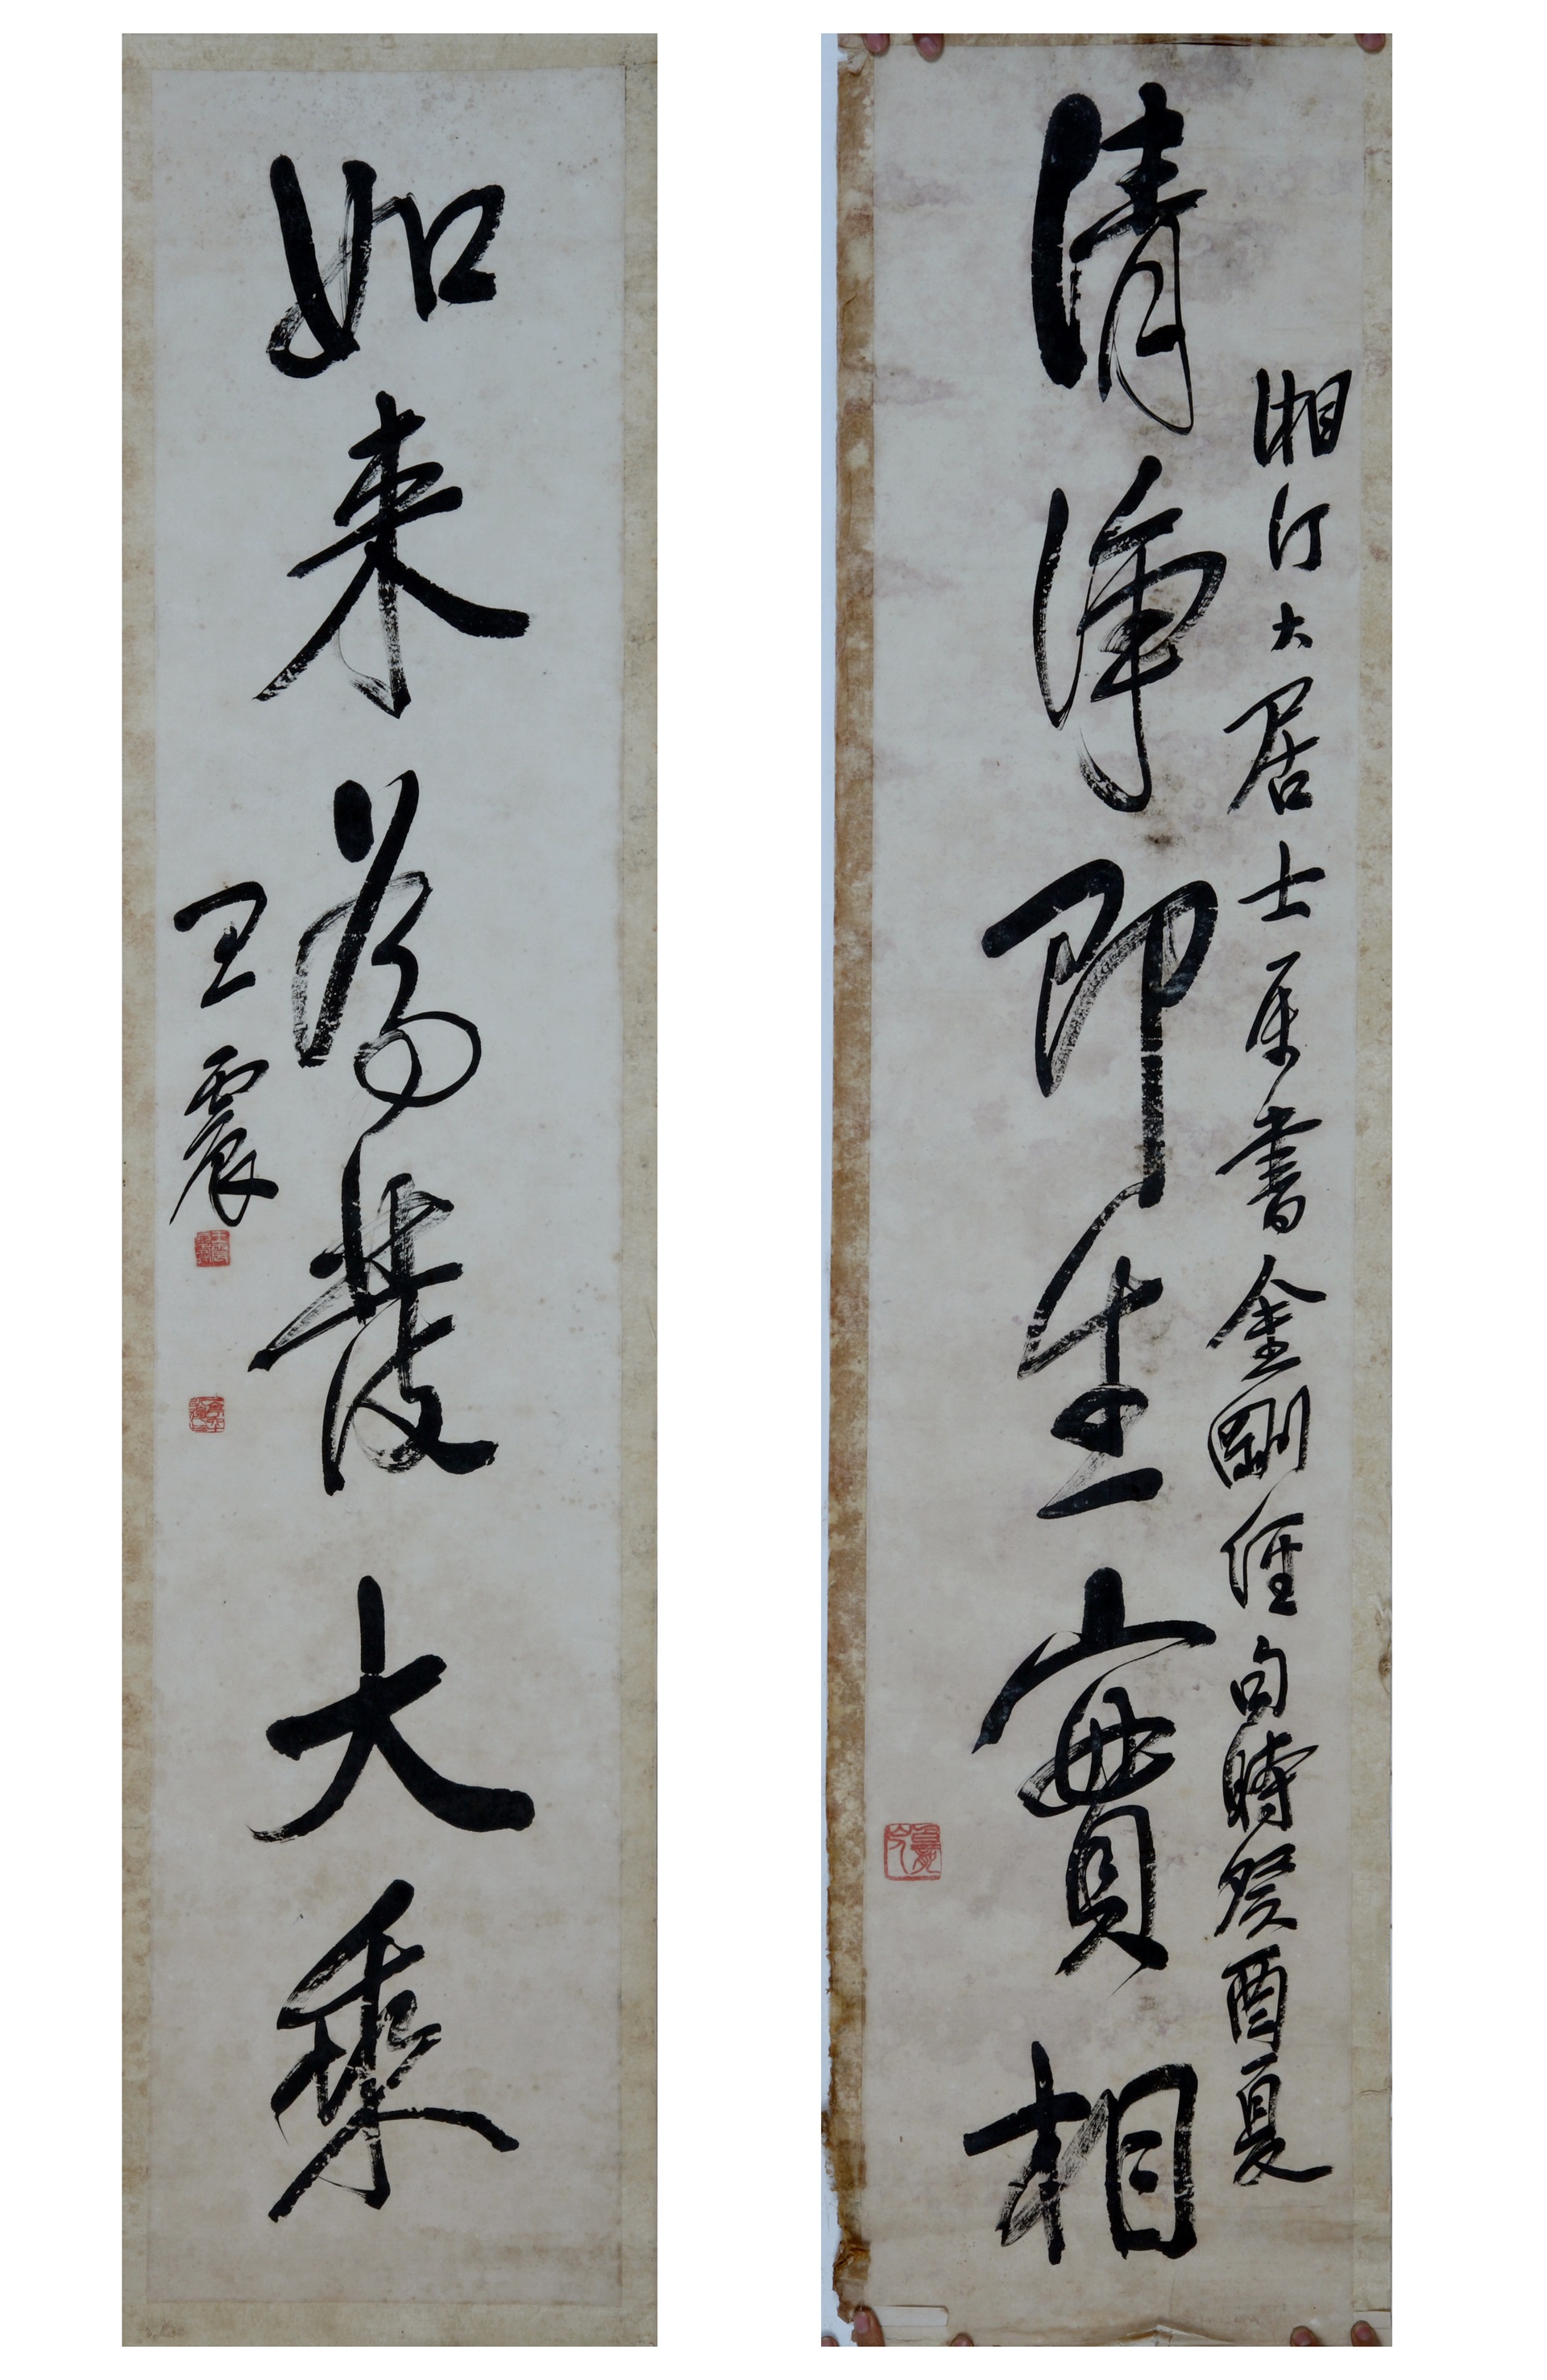 湘汀大居士属书金剛經句時癸酉夏
清淨即生實相
如来為發大乘
王震